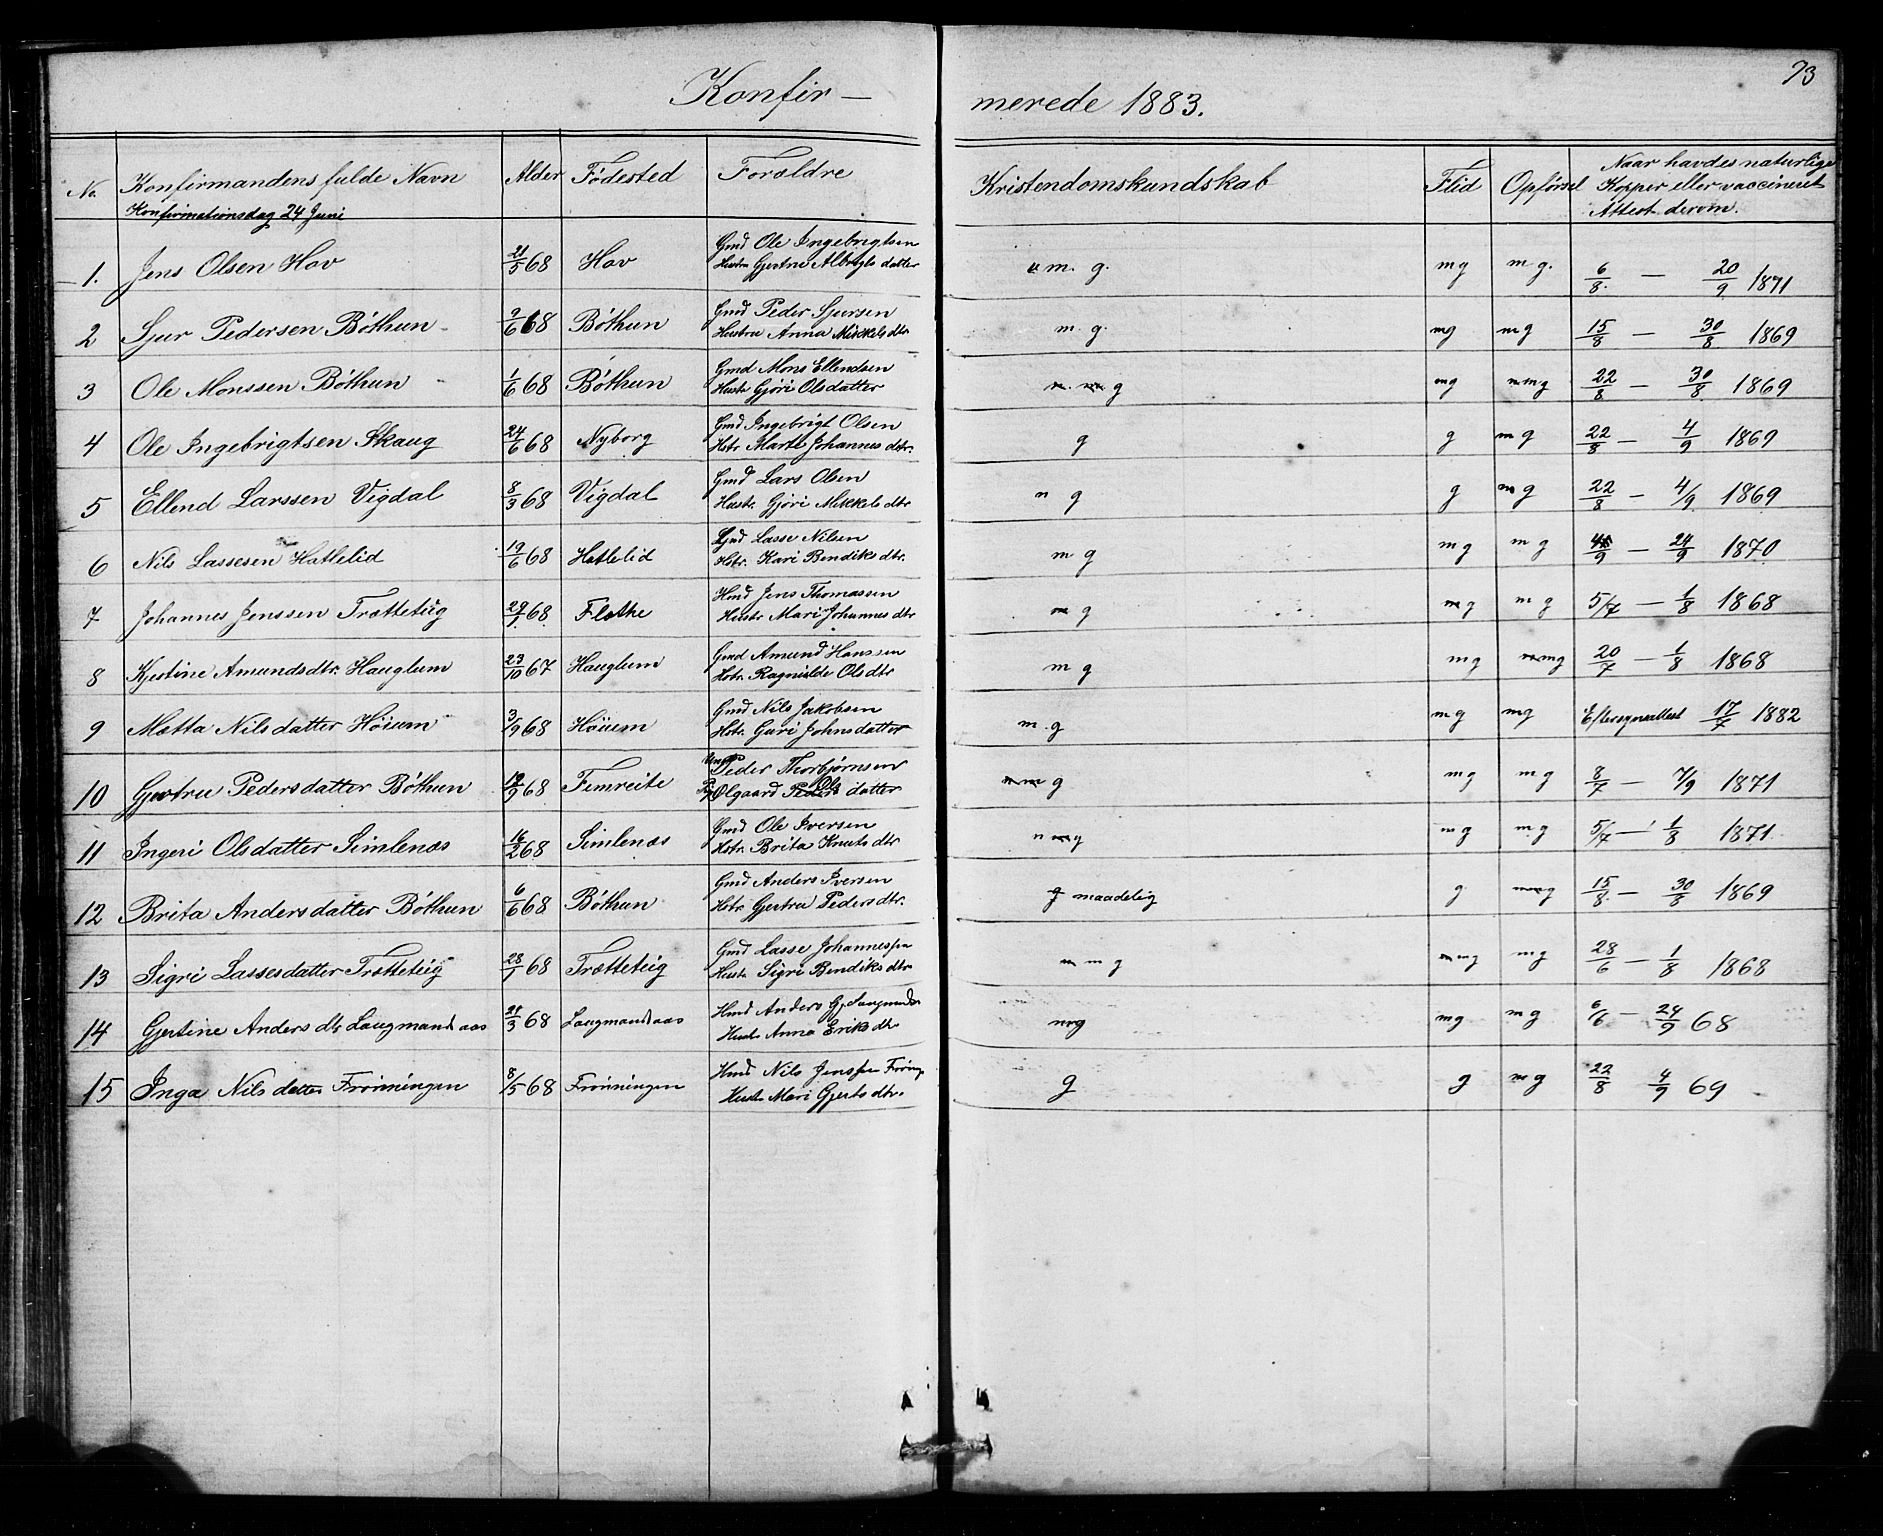 73
Konfir- merede 1883.
No. Konfirmandens fulde Navn Alder Födested Forældre Kristendomskundskab Flid Opförsel Naar havdes naturlige Kopper eller vaccineret Attest derom.
Konfirmationsdag 24 Juni
1. Jens Olsen Hov 21/5 68 Hov Gmd Ole Ingebrigtsen m. g. mg m g. 6/8 - 20/9 1871
Hustru Gjertrue Albrigts datter
2 Sjur Pedersen Böthun 9/6 68 Böthun Gmd Peder Sjursen m. g. mg mg 15/8 - 30/8 1869
Hustru Anna Mikkels dtr
3 Ole Monssen Böthun 1/6 68 Böthun Gmd Mons Ellendsen g mg mg 22/8 - 30/8 1869
Hustr Gjöri Olsdatter
4 Ole Ingebrigtsen Skaug 24/6 68 Nyborg Gmd Ingebrigt Olsen g g mg 22/8 - 4/9 1869
Hstr Marte Johannes dtr.
5 Ellend Larssen Vigdal 8/3 68 Vigdal Gmd Lars Olsen g g mg 22/8 - 4/9 1869
Hustr. Gjöri Mikkels dtr
6 Nils Lassesen Hatlelid 19/6 68 Hatlelid Gmd Lasse Nilsen m g m g m g /9 - 24/9 1870
Hstr. Kari Bendiks dtr.
7 Johannes Jenssen Trætteteig 29/ 68 Flathe Hmd Jens Thomassen m g mg m g 5/7 - 1/8 1868
Hustr Mari Johannes dtr
8 Kjestine Amundsdtr. Hauglum 23/10 67 Hauglum Gmd Amund Hanssen m g mg mg 20/7 - 1/8 1868
Hstr. Ragnilde Ols dtr
9 Mætta Nilsdatter Höium 3/9 68 Höium Gmd Nils Jakobsen m.g mg mg Eftersynsattest 17/7 1882
Hstr. Guri Johnsdatter
10 Gjertru Pedersdatter Böthun 19/9 68 Fimreite Peder Thorbjörnsen g mg m g 8/7 - 7/9 1871
Olgaard Ols datter
11 Ingeri Olsdatter Simlenæs 16/2 68 Simlenæs Gmd Ole Iversen mg mg mg 5/7 - 1/8 1871
Hstr. Brita Knuts dtr
12 Brita Andersdatter Böthun 6/6 68 Böthun Gmd Anders Iversen maadelig g mg 15/8 - 30/8 1869
Hstr Gjertru Peders dtr.
13 Sigri Lassesdatter Trætteteig 28/1 68 Trætteteig Gmd Lasse Johannessen m g mg mg 28/6 - 1/8 1868
Hustr Sigri Bendiks dtr
14 Gjertine Anders dtr Laugmandsaas 21/3 68 Laugmandsaas Hmd Anders Gj. mg mg m g 6/6 - 24/9 68
Hustr Anna Eriks dtr
15 Inga Nils datter Frönningen 8/5 68 Frönningen Hmd Nils Jenssen g g mg 22/8 4/9 69
Hustr Mari Gjerts dtr.